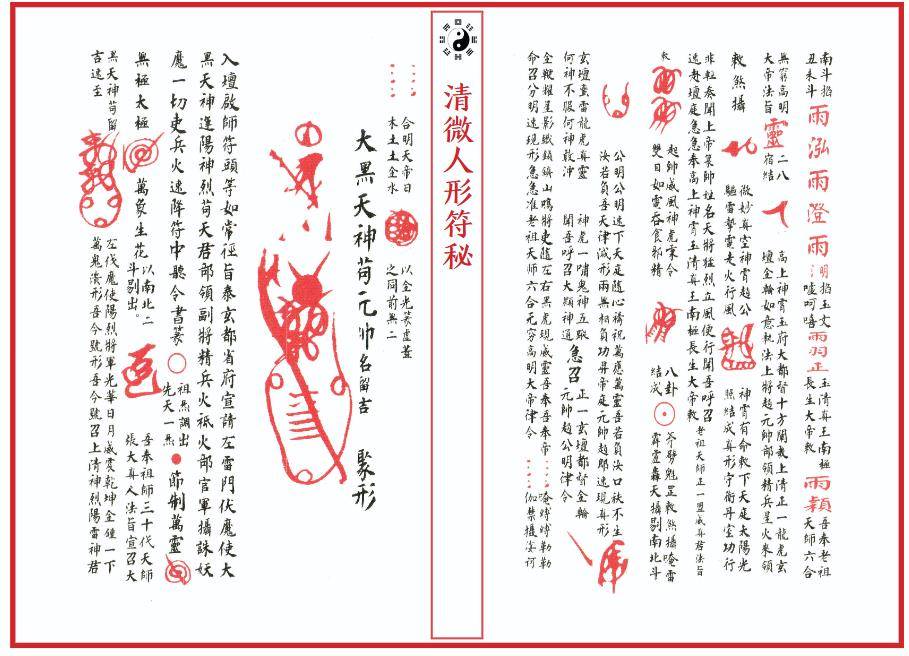 南斗掐
丑未斗
雨泓雨澄雨
明掐玉文
清噓呵嘻
雨羽正
玉清真王南極
長生大帝敕
雨穎
吾奉老祖
天師六合
無窮高明
大帝法旨
靈
二八
宿結
高上神霄玉府大都督十方闡教上清正一龍虎玄
壇金輪如意執法上將趙元帥部領精兵星火來領
敕煞攝
微妙真空神霄趙公
驅雷掣電走火行風
神霄有命敕下天庭太陽光
照結成真形守衛丹室功行
非輕奏聞上帝某帥姓名天將猛烈立風使行聞吾呼召
速赴壇庭急急奉高上神霄玉清真王南極長生大帝敕
老祖天師正一盟威真君法旨
敕
起帥威風神虎秉令
雙目如電吞食邪精
八卦
結成
斧劈魁罡敕煞攝唵雷
霹靂轟天攝剔南北斗
公明公明速下天庭隨心禱祝萬應萬靈吾若負汝口祑不生
汝若負吾天津滅形兩無相負功昇帝庭元帥趙郎速現真形
玄壇蠻雷龍虎真靈
何神不服何神敢沖
神虎一嘯鬼神五驅
聞吾呼召大顯神通
急召
正一玄壇都督金輪
元帥趙公明律令
全鞭耀星影鐵鎖鎮山鳴將吏隨左右黑虎現威靈吾奉奉帝
命召分明速現形急急准老祖天師六合无窮高明大帝律令
唵縛縛勒勒
伽禁攝娑訶
清微人形符秘
合明天帝日
木土土金水
以金光篆虛畫
之同前無二
大黑天神苟元帥名留吉 聚形
入壇啟師符頭等如常徑旨奉玄都省府宣請左雷門伏魔使大
黑天神進陽神烈苟天君部領副將精兵火祗火部官軍攝誅妖
魔一切吏兵火速降符中聽令書篆
祖炁調出
先天一炁
節制萬靈
無極太極
萬象生花
以南北二
斗剔出。
吾奉祖師三十代天師
張大真人法旨宣召大
黑天神苟留
吉速至
左伐魔使陽烈將軍光華日月威震乾坤金鍾一下
萬鬼潰形吾今號形吾令號召上清神烈陽雷神君